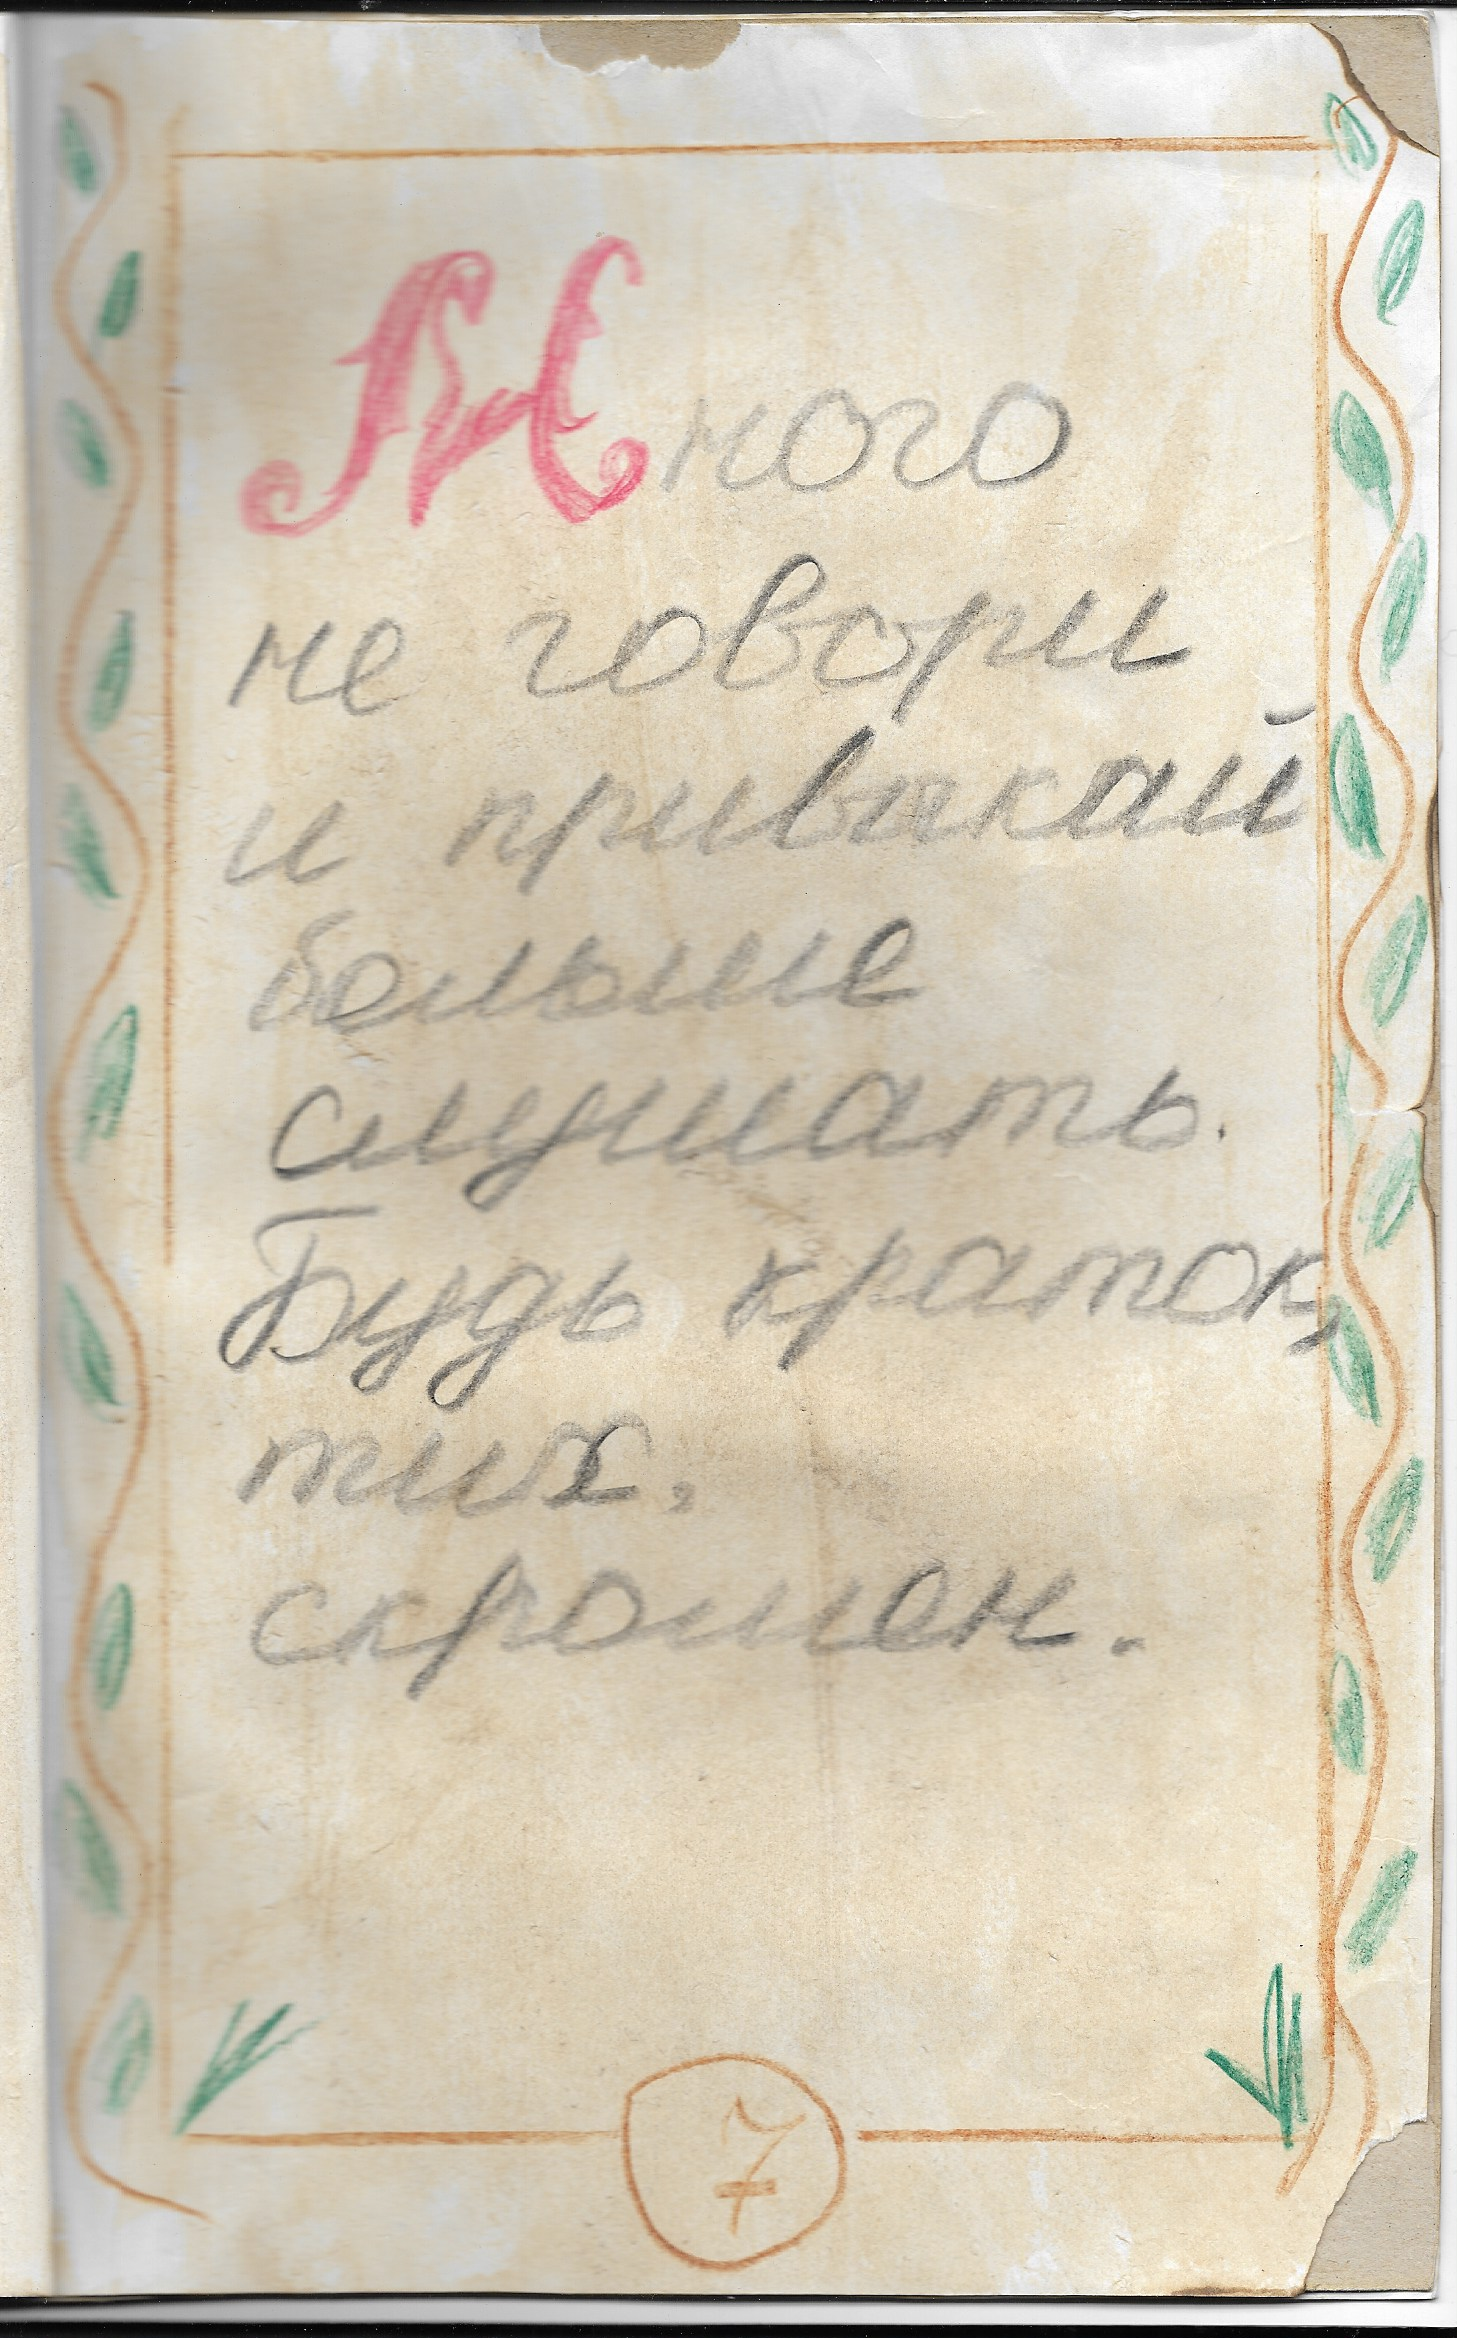 Много
не говори
и привыкай
больше
слушать.
Будь краток,
тих,
скромен.
7